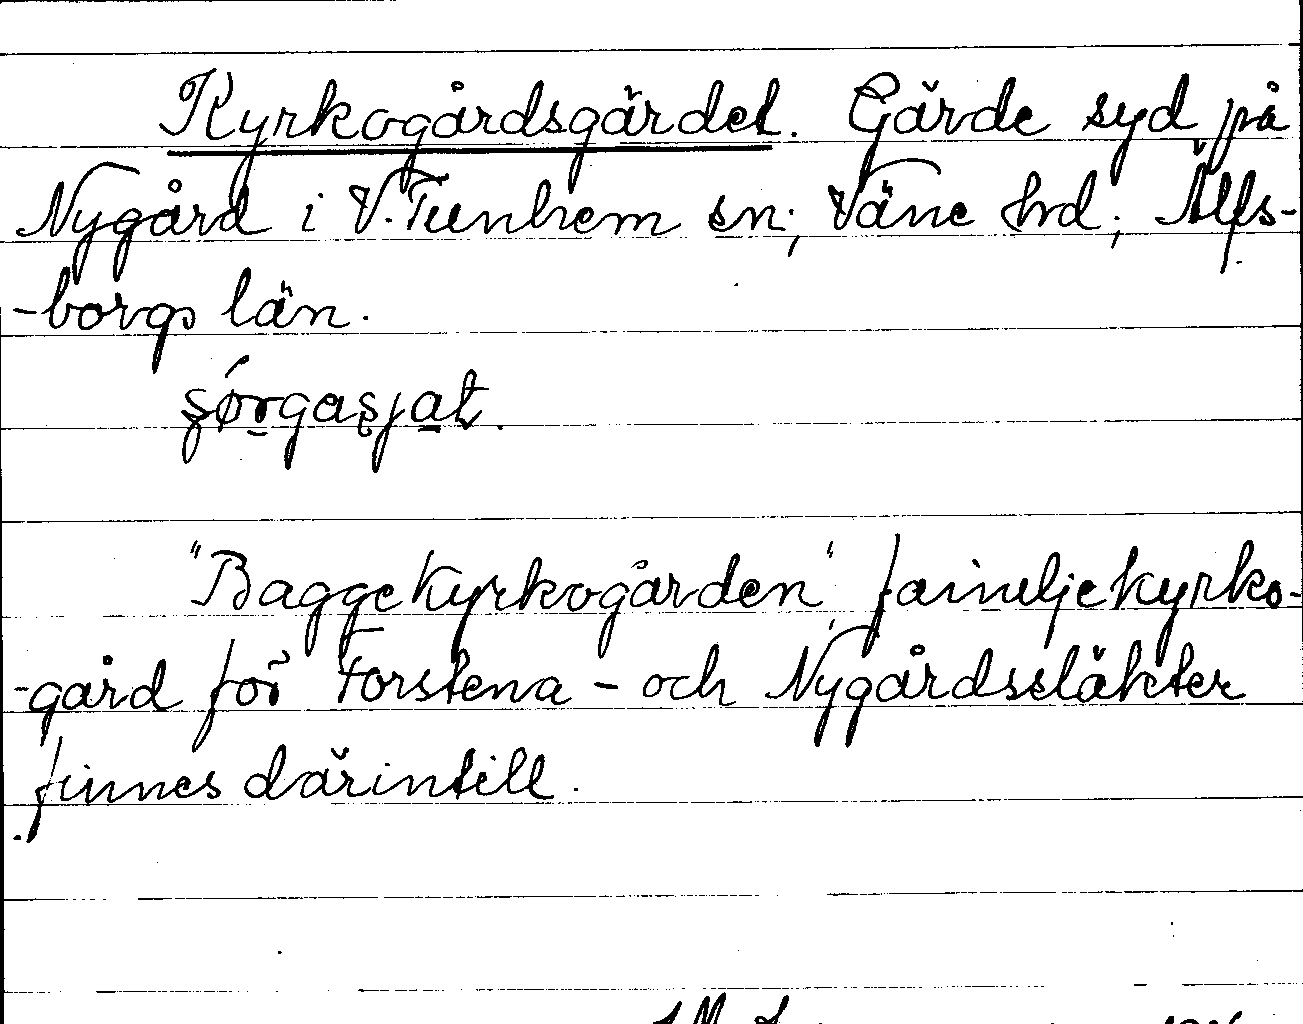 Kyrkogårdsgärdet. Gärde syd på
Nygård i V. Tunhem sn; Väne hd; Älfs-
-borgs län.
ʂǿrgaʂjat.
"Baggekyrkogården", familjekyrko-
-gård för Forstena- och Nygårdssläkter
finnes därintill.